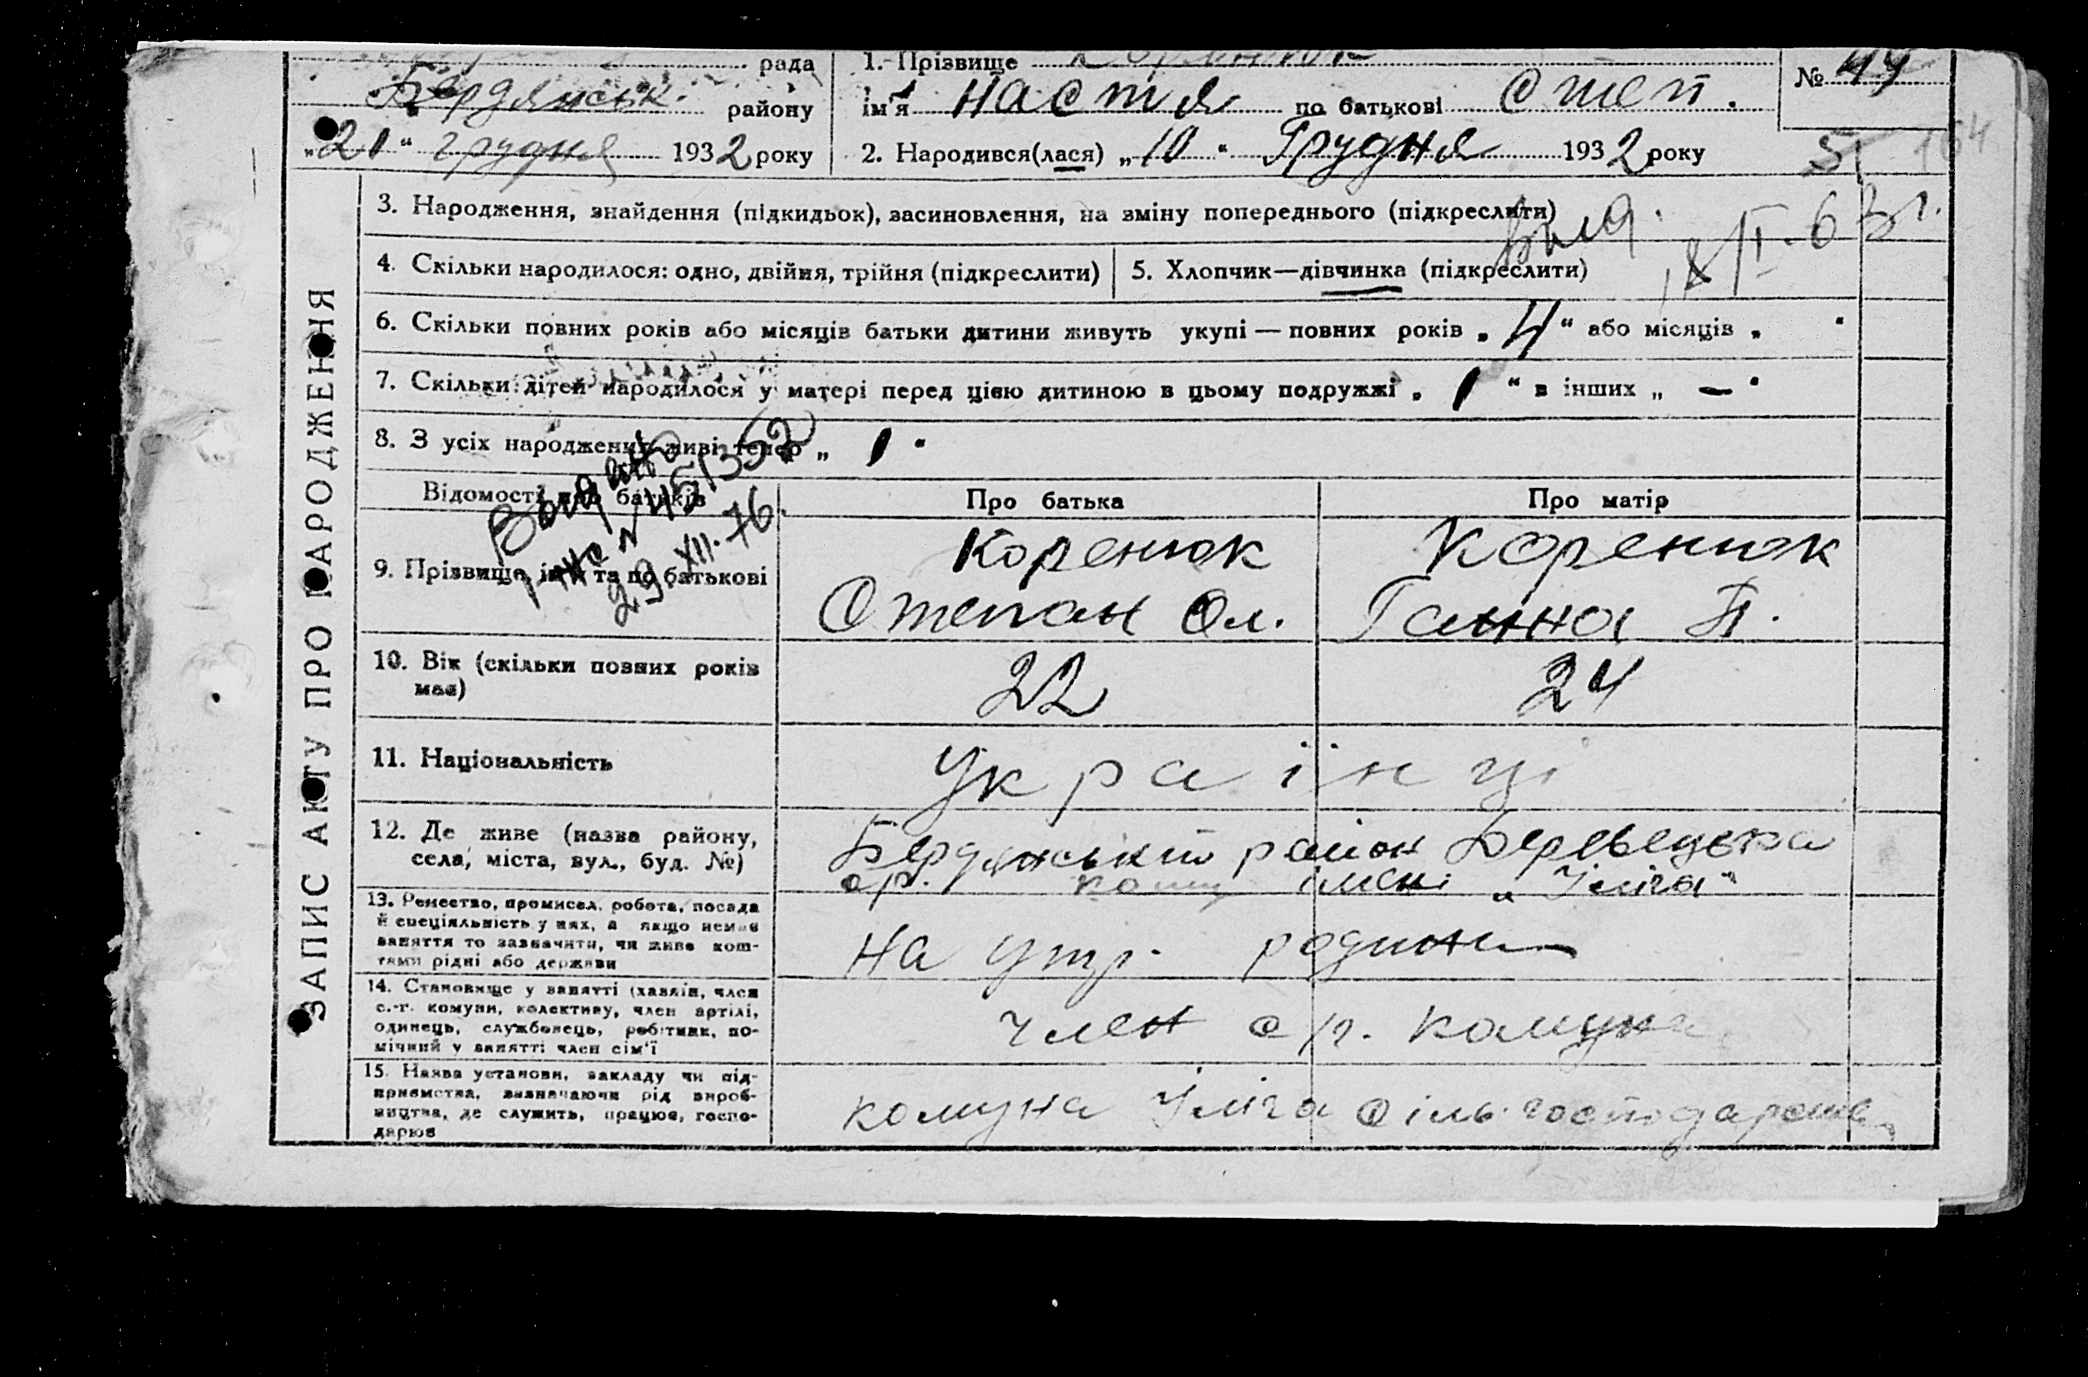 рада
Бердянськ. району
„21“ грудня 1932 року
1. Прізвище Коренюк
ім'я Настя по батькові Степ.
2. Народився(лася) „10“ Грудня 1932 року
№ 44
3. Народження, знайдення (підкидьок), засиновлення, на зміну попереднього (підкреслити)
4. Скільки народилося: одно, двійня, трійня (підкреслити)
5. Хлопчик—дівчинка (підкреслити)
6. Скільки повних років або місяців батьки дитини живуть укупі — повних років „4“ або місяців „ “
7. Скільки дітей народилося у матері перед цією дитиною в цьому подружжі „1“ в інших „—“
8. З усіх народжених живі тепер „1“
№ 451352
29.XII.76.
Відомості про батьків
Про батька
Про матір
9. Прізвище, ім'я та по батькові
Коренюк
Степан Ол.
Коренюк
Ганна П.
10. Вік (скільки повних років має)
22
24
11. Національність
Українці
12. Де живе (назва району,
села, міста, вул., буд. №)
Бердянський район
ср. кому імені „Ілліча“
13. Ремество, промисел, робота, посада
й спеціяльність у них, а якщо немає
заняття то зазначити, чи живе кош-
тами рідні або держави
На утр. родини
14. Становище у занятті (хазяїн, член
с.-г. комуни, колективу, член артілі,
одинець, службовець, робітник, по-
мічний у занятті член сім'ї
член с/г. комуни
15. Назва установи, закладу чи під-
приємства, визначаючи рід вироб-
ництва, де служить, працює, госпо-
дарює
комуна Ілліча сіль-господарств
ЗАПИС АКТУ ПРО НАРОДЖЕННЯ